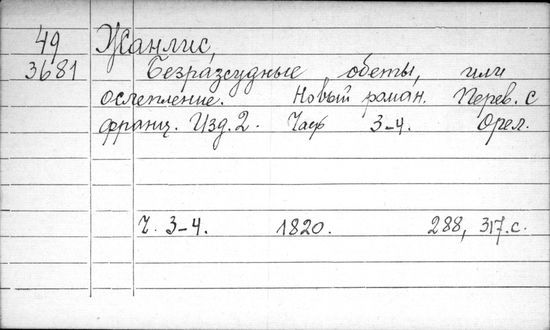 49 Жанлис,
3681 Безразсудные обеты, или
ослепление. Новый роман. Перев. с
франц. Изд. 2. Част 3-4. Орел.
Ч. 3-4. 1820. 288, 317.с.